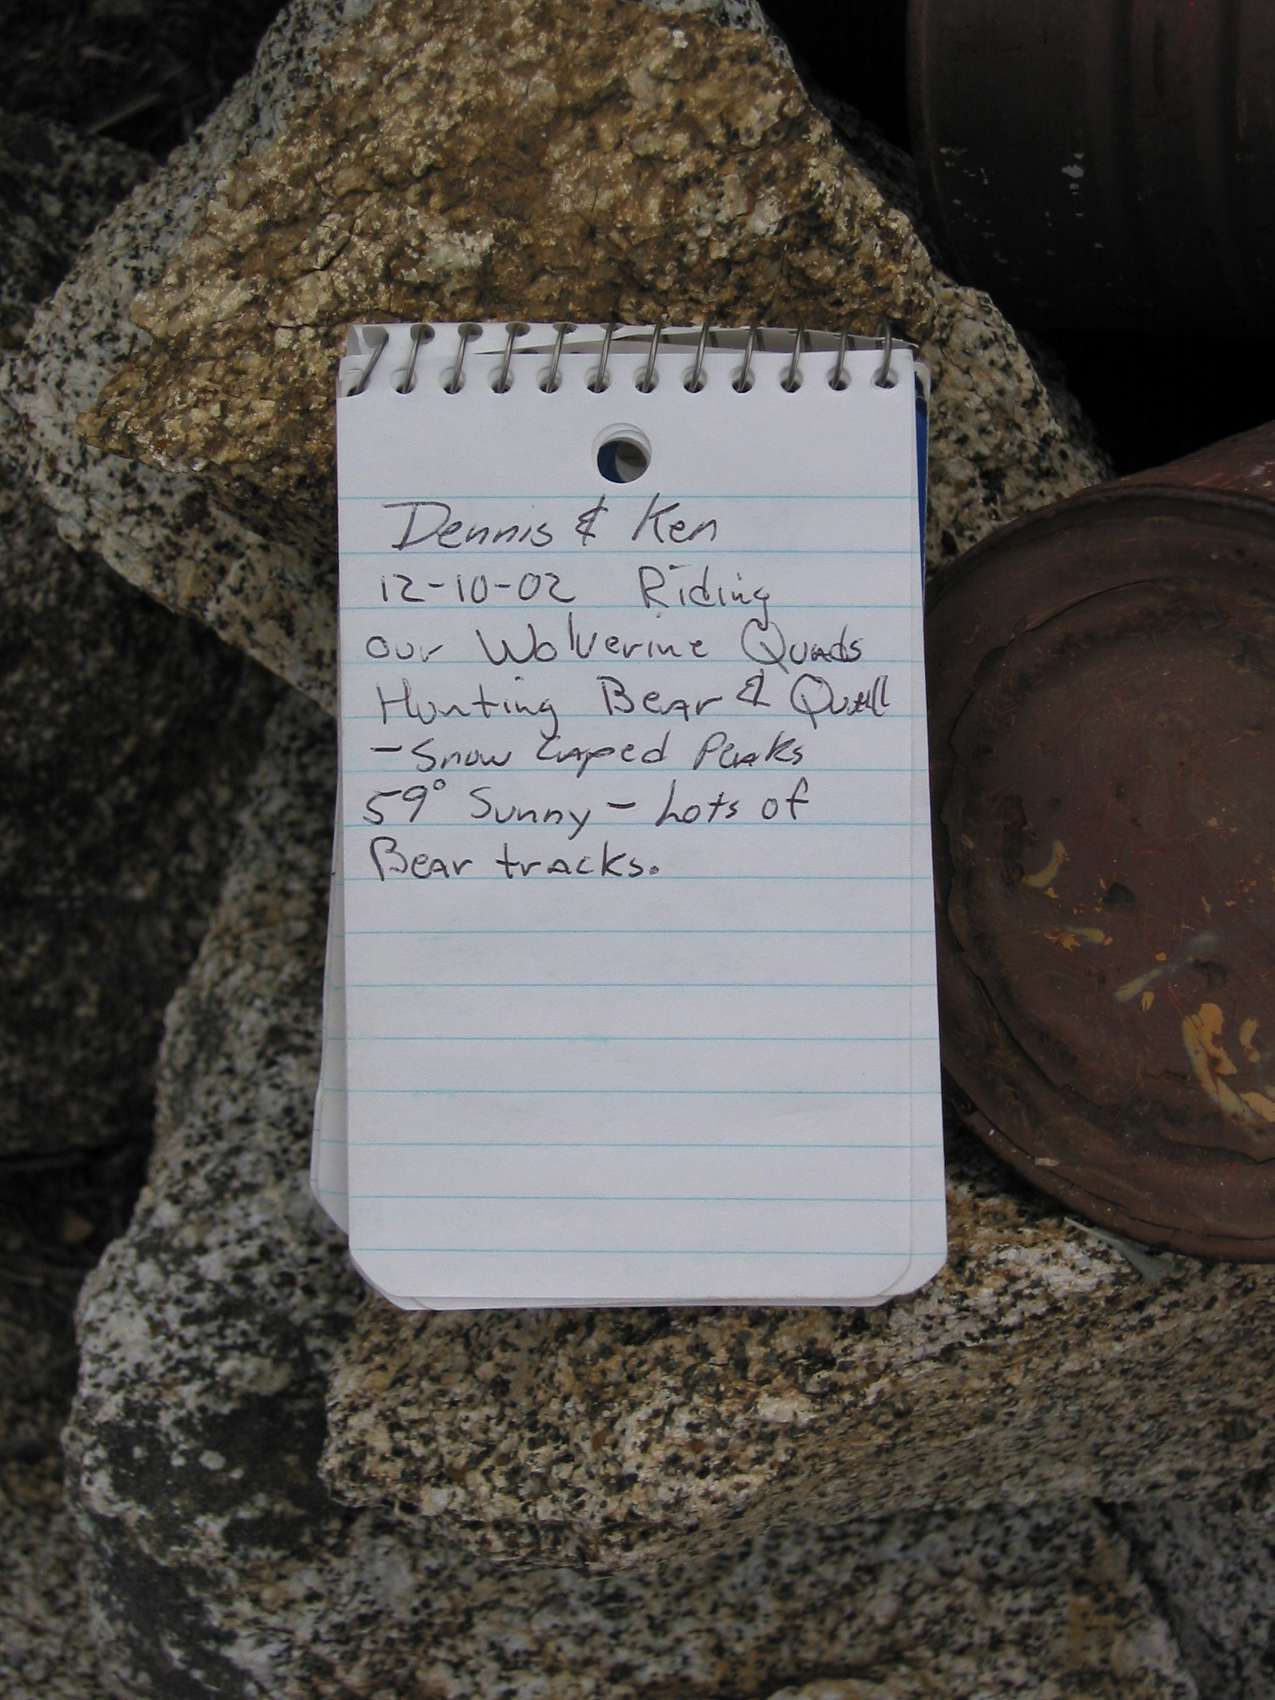 Dennis & Ken
12-10-02 Riding
our Wolverine Quads
Hunting Bear & Quail
- Snow Caped Peaks
59° Sunny - Lots of
Bear tracks.